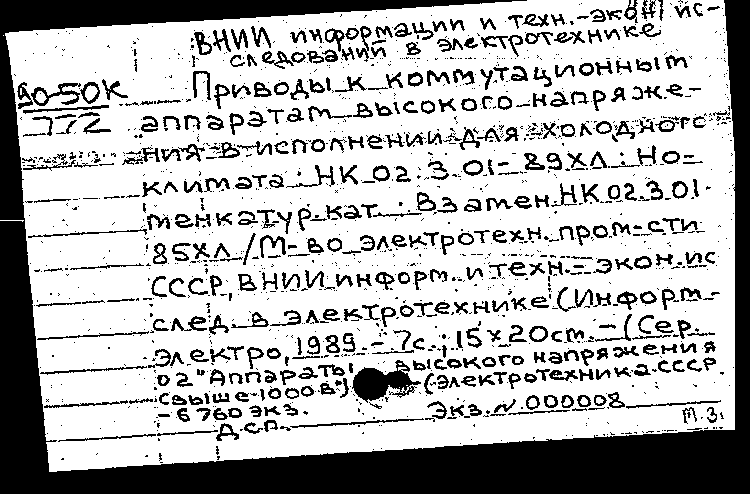 ВНИИ информации и техн.-экон. ис-
следований в электротехнике
90-50К
772
Приводы к коммутационным
аппаратам высокого напряже-
ния в исполнении для холодного
климата : НК 02.3.01-89ХЛ : Но-
менклатур. кат. : Взамен НК 02.3.01-
85ХЛ / М-во электротехн. пром-сти
СССР, ВНИИ информ. и техн.-экон. ис
след. в электротехнике (Информ-
электро, 1989. - 7с.; 15×20см. - (Сер.
02 "Аппараты высокого напряжения
свыше 1000 В") (Электротехника СССР.
- 6760 экз. Экз. № 000008
Д.с.п.
М.З.